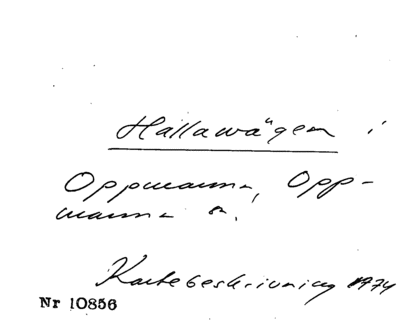 Hallawägen i
Oppmanna, Opp-
manna s.
Kartebeskrivning 1974
Nr 10856